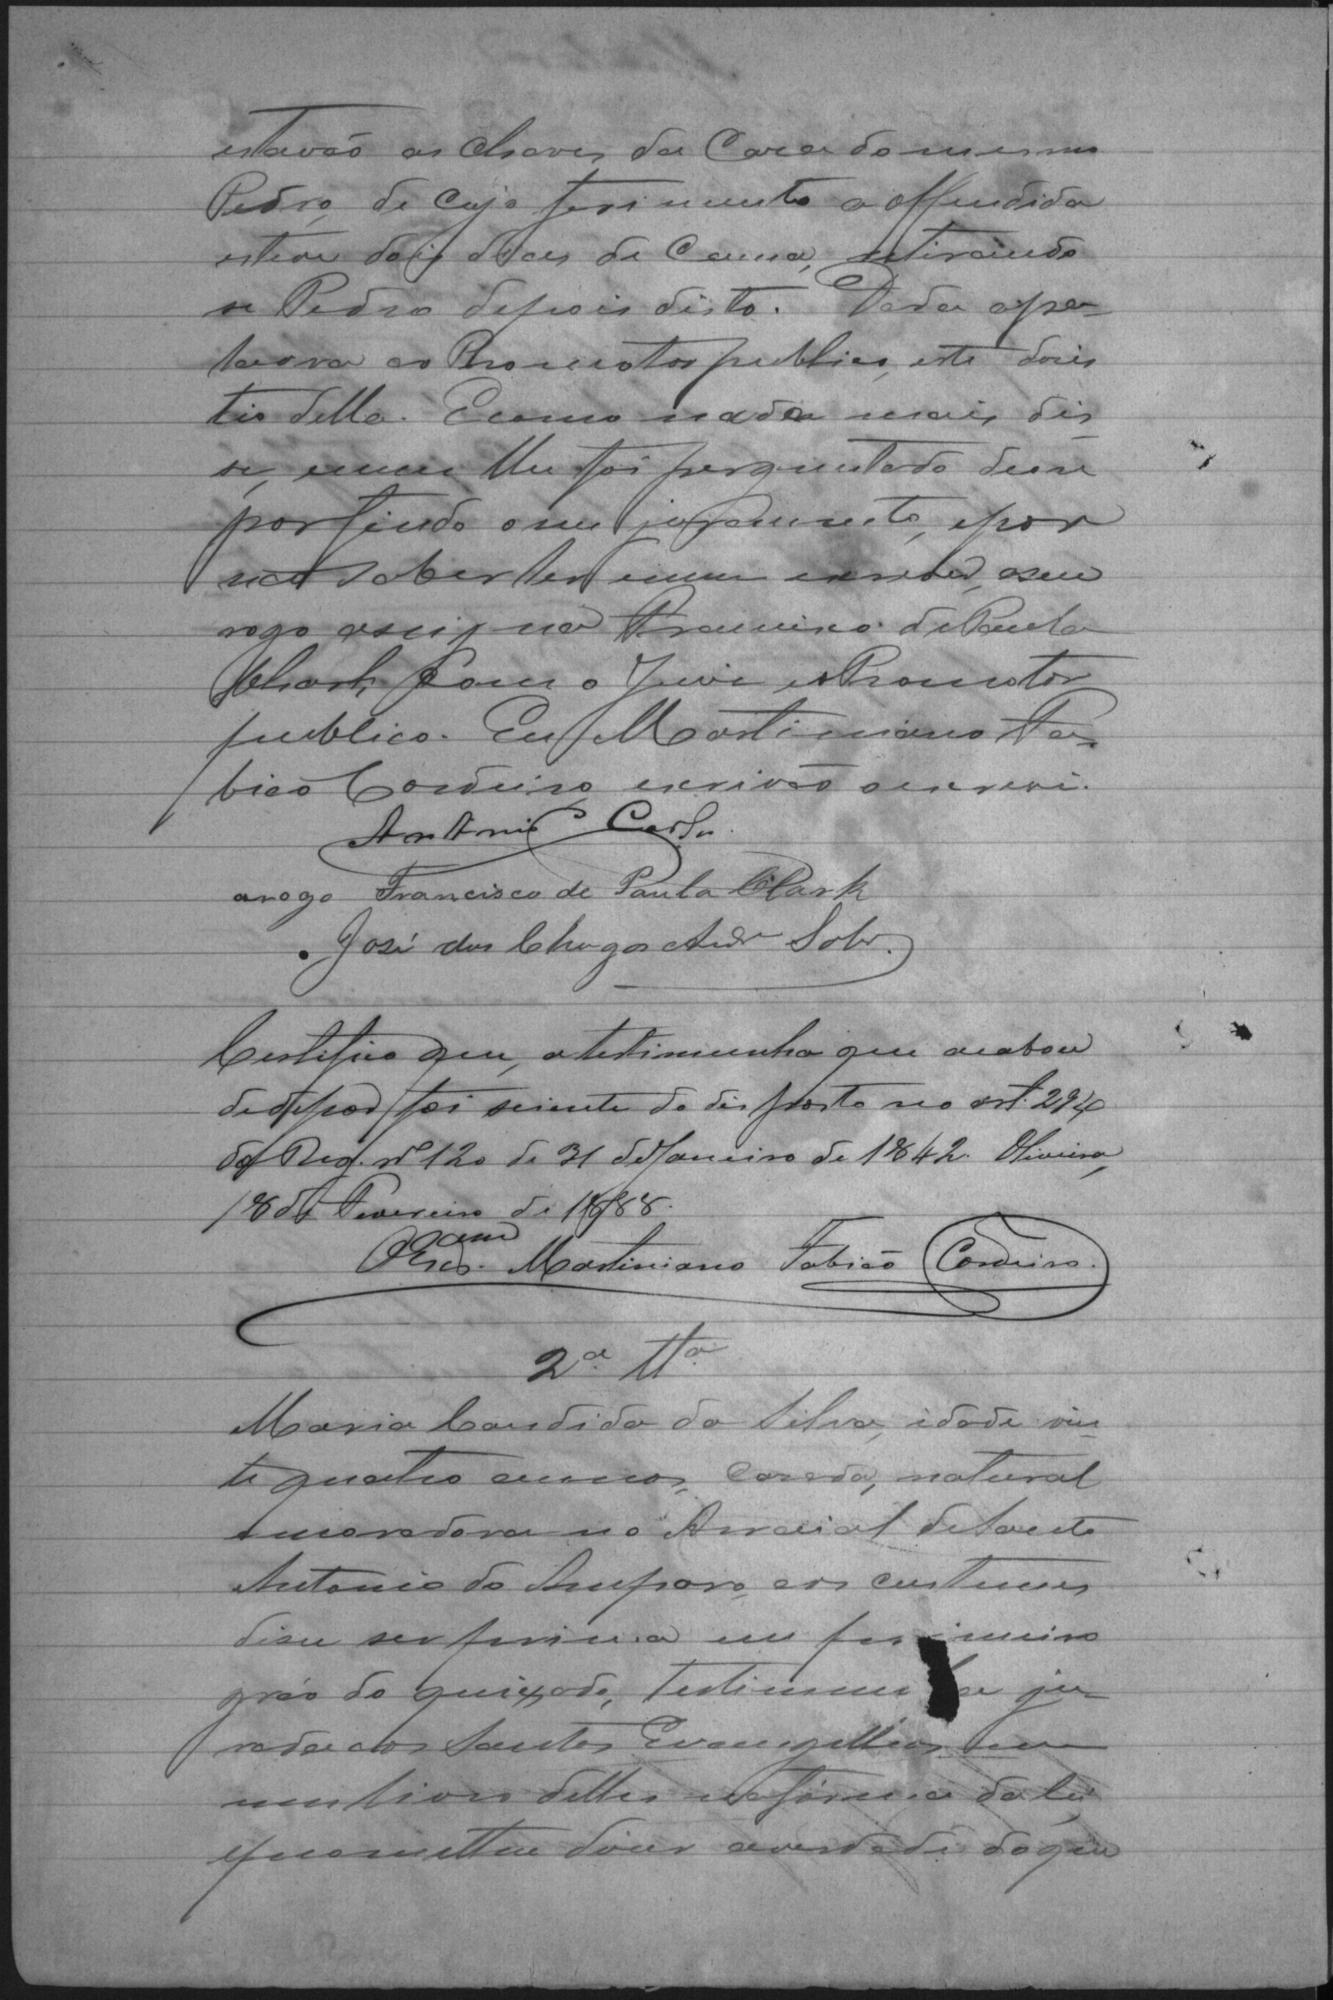 estavão as chaves da Casa do mesmo
Pedro, de cujo ferimento a offendida
esteve dois dias de Cama, retirando
se Pedro depois disto. Dada a pa-
lavra ao Promotor publico, este disis
tio della. E como nada mais dis
se, e nem lhe foi perguntado deose
por findo o seu juramento, e por
não saber ler e nem escrever, a seu
rogo assigna Francisco de Paula
Chark com o Juiz e o Promotor
publico. Eu, Martiniano Fa-
bião Cordeiro, escrivão o escrevi.
Antonio Carlos
arogo Francisco de Paula Clark
José das Chagas Andr Sobr.
Certifico que, a testimunha que acabou
de depor foi sciente do disposto no art. 294
do Reg. nº 120 de 31 de Janeiro de 1842. Oliveira,
18 de Fevereiro de 1888.
O Escram Martiniano Fabião Cordeiro.
2ª Ttª
Maria Candida da Silva, idade vin
te quatro annos, casada, natural
e moradora no Arraial de Santo
Antonio do Amparo, aos custumes
disse ser prima em primeiro
gráo do queixado, testimunha ju-
rada aos Santos Evangelhos em
um livro delles na fórma da lei
e prometteu dizer a verdade do que